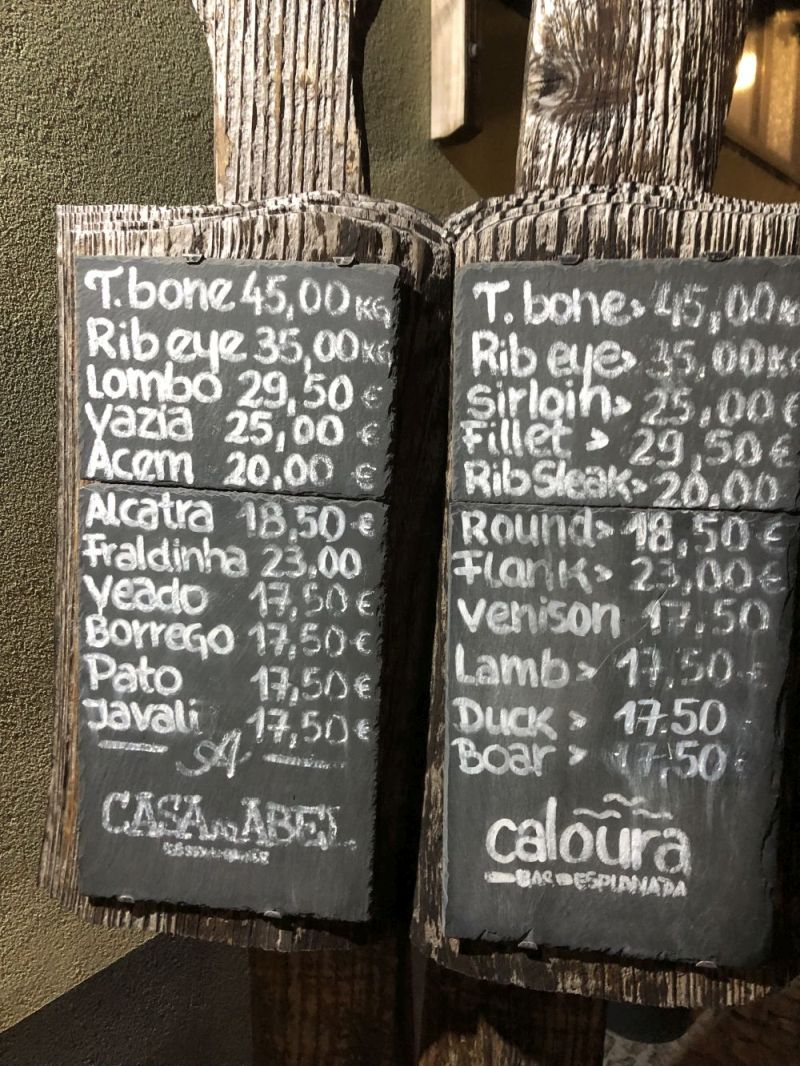 T.bone 45,00 KG
Rib eye 35,00 KG
Lombo 29,50 €
Vazia 25,00 €
Acém 20,00 €
Alcatra 18,50 €
Fraldinha 23,00
Veado 17,50 €
Borrego 17,50 €
Pato 17,50 €
Javali 17,50 €
CASA do ABEL
T. bone> 45,00 K
Rib eye> 35,00 KG
Sirloin> 25,00 €
Fillet > 29,50 €
Rib Steak> 20,00
Round> 18,50 €
Flank> 23,00 €
Venison 17,50
Lamb> 17,50 €
Duck > 17.50
Boar > 17,50 €
caloura
BAR ESPLANADA